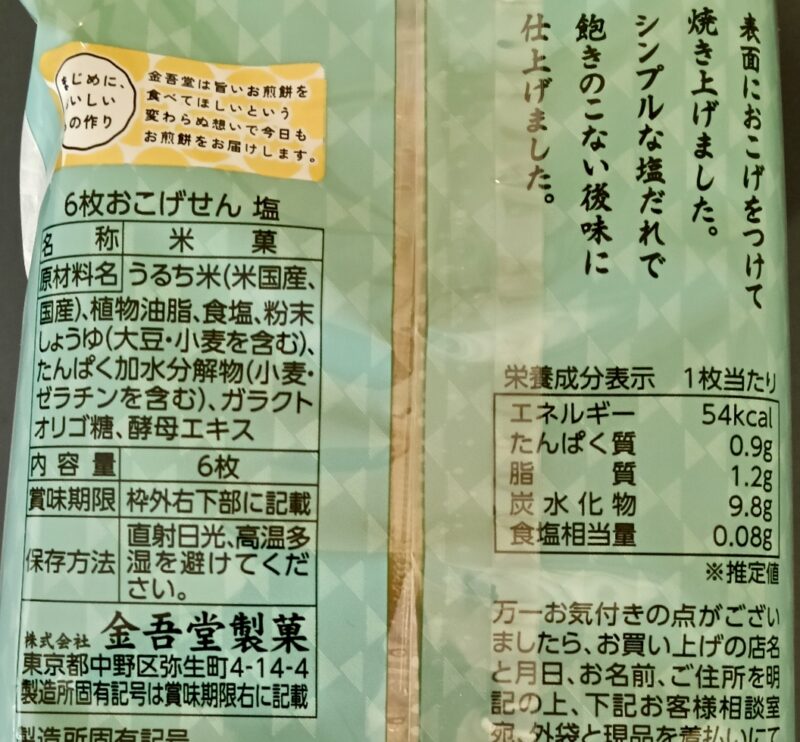 まじめに、
おいしい
もの作り
金吾堂は旨いお煎餅を
食べてほしいという
変わらぬ想いで今日も
お煎餅をお届けします。
6枚おこげせん 塩
名称 米菓
原材料名 うるち米(米国産、
国産)、植物油脂、食塩、粉末
しょうゆ(大豆・小麦を含む)、
たんぱく加水分解物(小麦・
ゼラチンを含む)、ガラクト
オリゴ糖、酵母エキス
内容量 6枚
賞味期限 枠外右下部に記載
保存方法 直射日光、高温多
湿を避けてくだ
さい。
株式会社 金吾堂製菓
東京都中野区弥生町4-14-4
製造所固有記号は賞味期限右に記載
製造所固有記号
表面におこげをつけて
焼き上げました。
シンプルな塩だれで
飽きのこない後味に
仕上げました。
栄養成分表示 1枚当たり
エネルギー 54kcal
たんぱく質 0.9g
脂質 1.2g
炭水化物 9.8g
食塩相当量 0.08g
※推定値
万一お気付きの点がござい
ましたら、お買い上げの店名
と月日、お名前、ご住所を明
記の上、下記お客様相談室
宛、外袋と現品を着払いにて